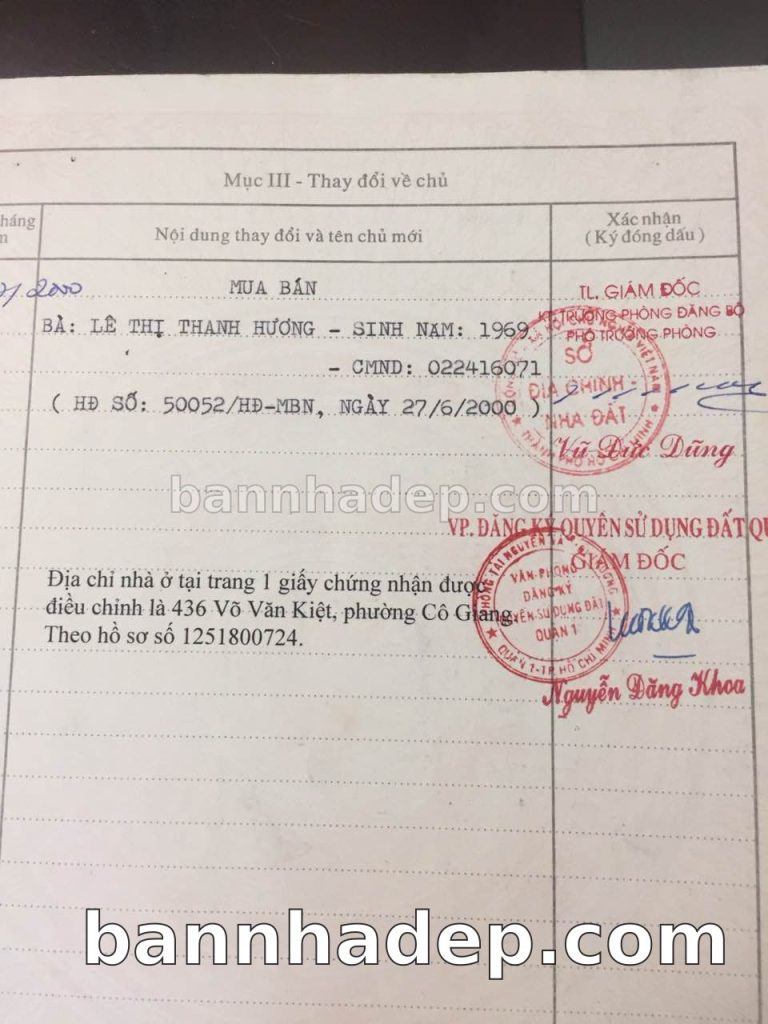 Mục III - Thay đổi về chủ
háng
Nội dung thay đổi và tên chủ mới
Xác nhận
(Ký đóng dấu)
2000
MUA BÁN
TL. GIÁM ĐỐC
KT. TRƯỞNG PHÒNG ĐĂNG BỘ
PHÓ TRƯỞNG PHÒNG
BÀ: LÊ THỊ THANH HƯƠNG - SINH NAM: 1969
- CMND: 022416071
( HĐ SỐ: 50052/HĐ-MBN, NGÀY 27/6/2000 )
SỞ
ĐỊA CHÍNH
NHÀ ĐẤT
THÀNH PHỐ HỒ CHÍ MINH
Vũ Đức Dũng
bannhadep.com
VP. ĐĂNG KÝ QUYỀN SỬ DỤNG ĐẤT QU
GIÁM ĐỐC
VĂN PHÒNG
ĐĂNG KÝ
QUYỀN SỬ DỤNG ĐẤT
QUẬN 1
QUẬN 1-TP. HỒ CHÍ MINH
Địa chỉ nhà ở tại trang 1 giấy chứng nhận được
điều chỉnh là 436 Võ Văn Kiệt, phường Cô Giang.
Theo hồ sơ số 1251800724.
Nguyễn Đăng Khoa
bannhadep.com